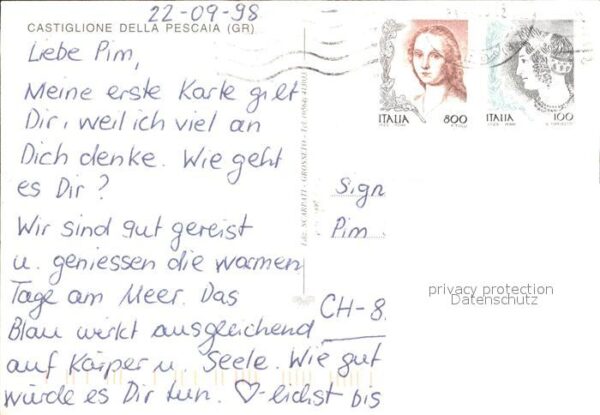 22-09-98
CASTIGLIONE DELLA PESCAIA (GR)
Liebe Pim,
Meine erste Karte gilt
Dir, weil ich viel an
Dich denke. Wie geht
es Dir?
Wir sind gut gereist
u. geniessen die warmen
Tage am Meer. Das
Blau wirkt ausgleichend
auf Körper u. Seele. Wie gut
würde es Dir tun. ♡-lichst bis
ITALIA 800
ITALIA 100
Sign
Pim
CH-8
privacy protection
Datenschutz